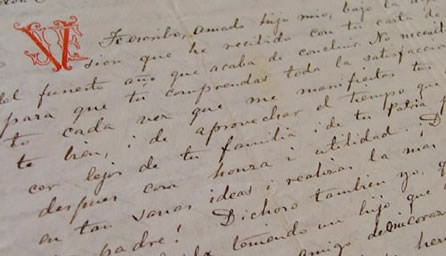 Te escribo, amado hijo mio, bajo la
sion que he recibido con tu carta de
del funesto año que acaba de concluir. No necesit
para que tú comprendas toda la satisfacc
to cada vez que me manifiestas tu
te bien, i de aprovechar el tiempo que
cer lejos de tu familia i de tu Patria
despues con honra i utilidad ¡D
en tan sanas ideas i realizar la mas
padre! Dichoso tambien yo,
teniendo un hijo que
amigo de mi coraz